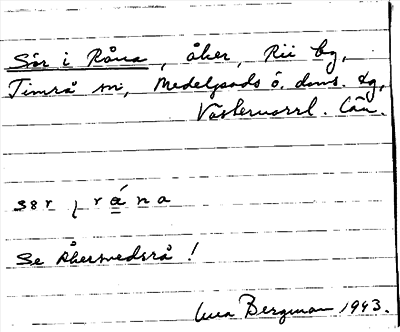 Sör i Råna, åker, Rii bg,
Timrå sn, Medelpads ö. doms. tg,
Västernorrl. län.
sör i råna
Se Åkersvedsrå !
Bergman 1943.